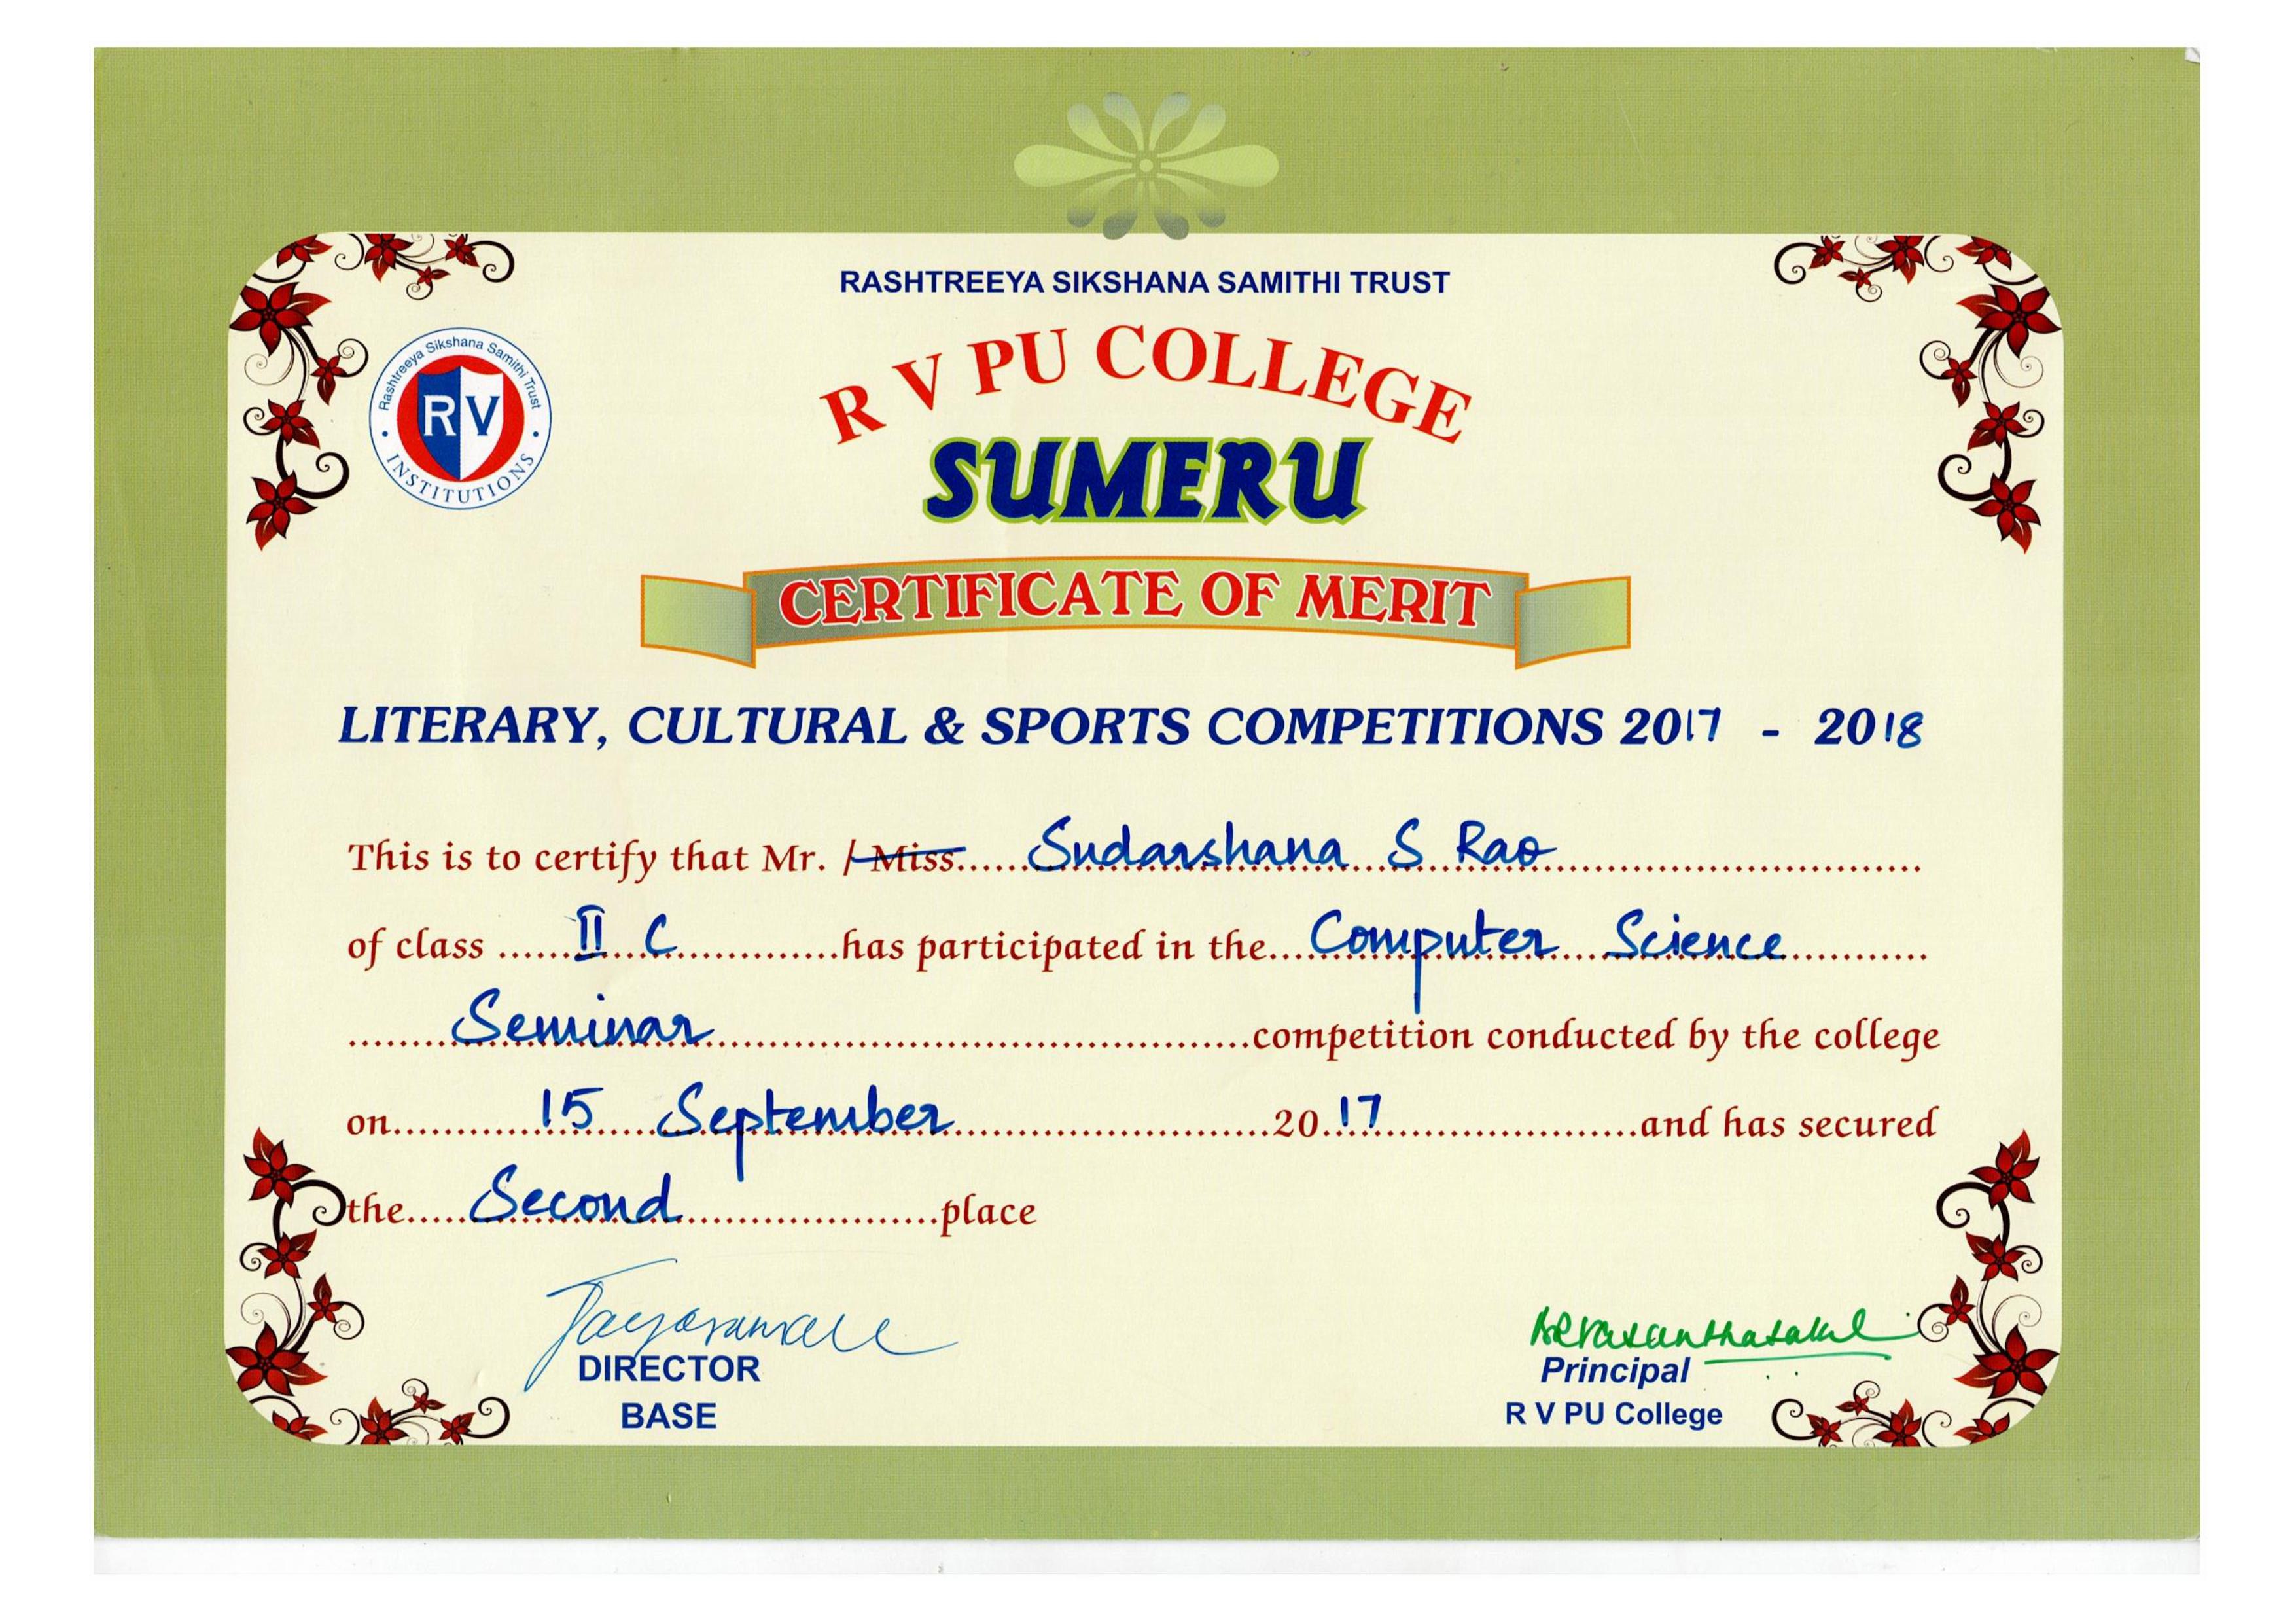 RASHTREEYA SIKSHANA SAMITHI TRUST
Rashtreeya Sikshana Samithi Trust
RV
INSTITUTIONS
R V PU COLLEGE
SUMERU
CERTIFICATE OF MERIT
LITERARY, CULTURAL & SPORTS COMPETITIONS 2017 - 2018
This is to certify that Mr. / Miss......Sudarshana S Rao
of class ......II C..............has participated in the...Computer Science
Seminar...competition conducted by the college
on...15 September...20.17...and has secured
the.....Second...place
DIRECTOR
BASE
Principal
R V PU College